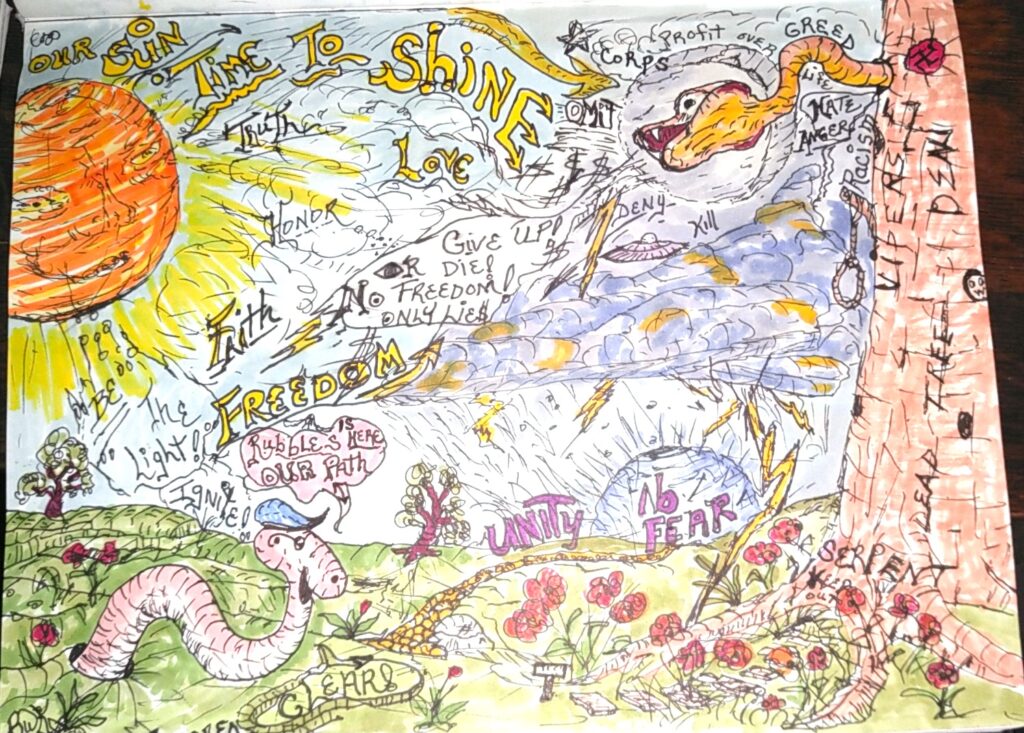 OUR SUN
TIME TO SHINE
PROFIT OVER
GREED
CORPS
OMIT
LIFE
HATE
ANGER
Racism
Truth
LOVE
$ $ $
HONOR
DENY
Kill
GIVE UP!
OR DIE!
NO FREEDOM!
ONLY LIES
Faith
IN
FREEDOM
BE
The
Light!
IGNITE!
IS
BUBBLES HERE
OUR PATH
UNITY
NO
FEAR
VIPENETT
DEAD TREE DEN
SERPENT
KEEP
OUT
CLEARS